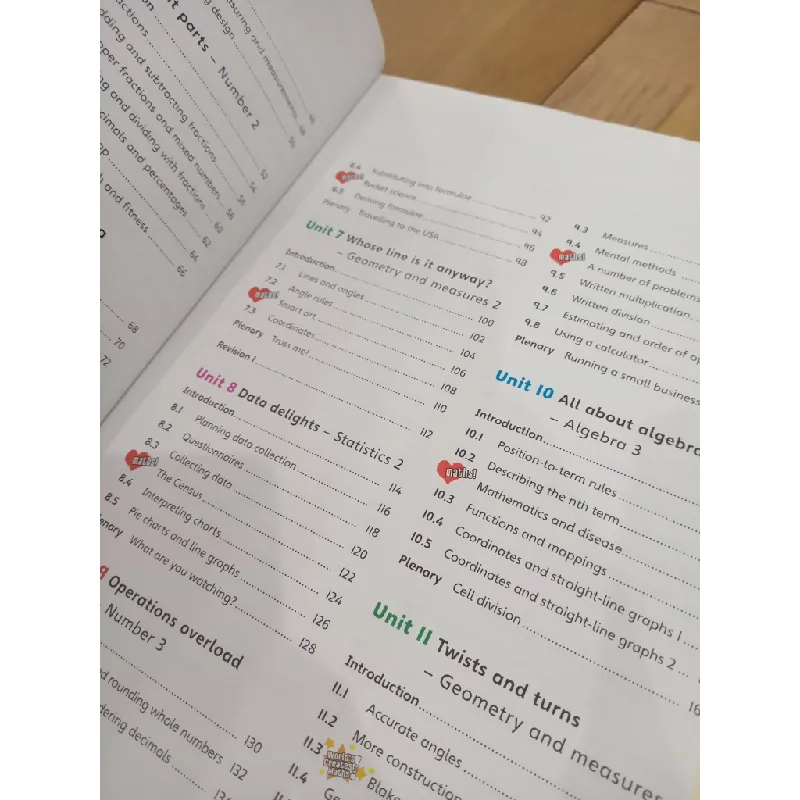 suring and measurements
g design
48
t parts – Number 2
50
ctions
dding and subtracting fractions
52
oper fractions and mixed numbers
54
ng and dividing with fractions
56
58
ecimals and percentages
60
62
h and fitness
64
66
68
70
72
8.4 Substituting into formulae 92
maths! Rocket science 94
6.5 Deriving formulae 96
Plenary Travelling to the USA 98
Unit 7 Whose line is it anyway?
– Geometry and measures 2
Introduction 100
7.1 Lines and angles 102
7.2 Angle rules 104
maths! Smart art 106
7.3 Coordinates 108
Plenary Truss me! 110
Revision 1 112
Unit 8 Data delights – Statistics 2
Introduction 114
8.1 Planning data collection 116
8.2 Questionnaires 118
8.3 Collecting data 120
maths! The Census 122
8.4 Interpreting charts 124
8.5 Pie charts and line graphs 126
enary What are you watching? 128
9 Operations overload
Number 3
130
d rounding whole numbers 132
dering decimals 134
9.3 Measures
9.4 Mental methods
maths! A number of problems
9.5 Written multiplication
9.6 Written division
9.7 Estimating and order of op
9.8 Using a calculator
Plenary Running a small business
Unit 10 All about algebra
– Algebra 3
Introduction
10.1 Position-to-term rules
10.2 Describing the nth term
maths! Mathematics and disease
10.3 Functions and mappings
10.4 Coordinates and straight-line graphs 1
10.5 Coordinates and straight-line graphs 2
Plenary Cell division 16
Unit 11 Twists and turns
– Geometry and measures
Introduction
11.1 Accurate angles
11.2 More construction
World's Greatest Maths Blake
11.3
11.4 Ge